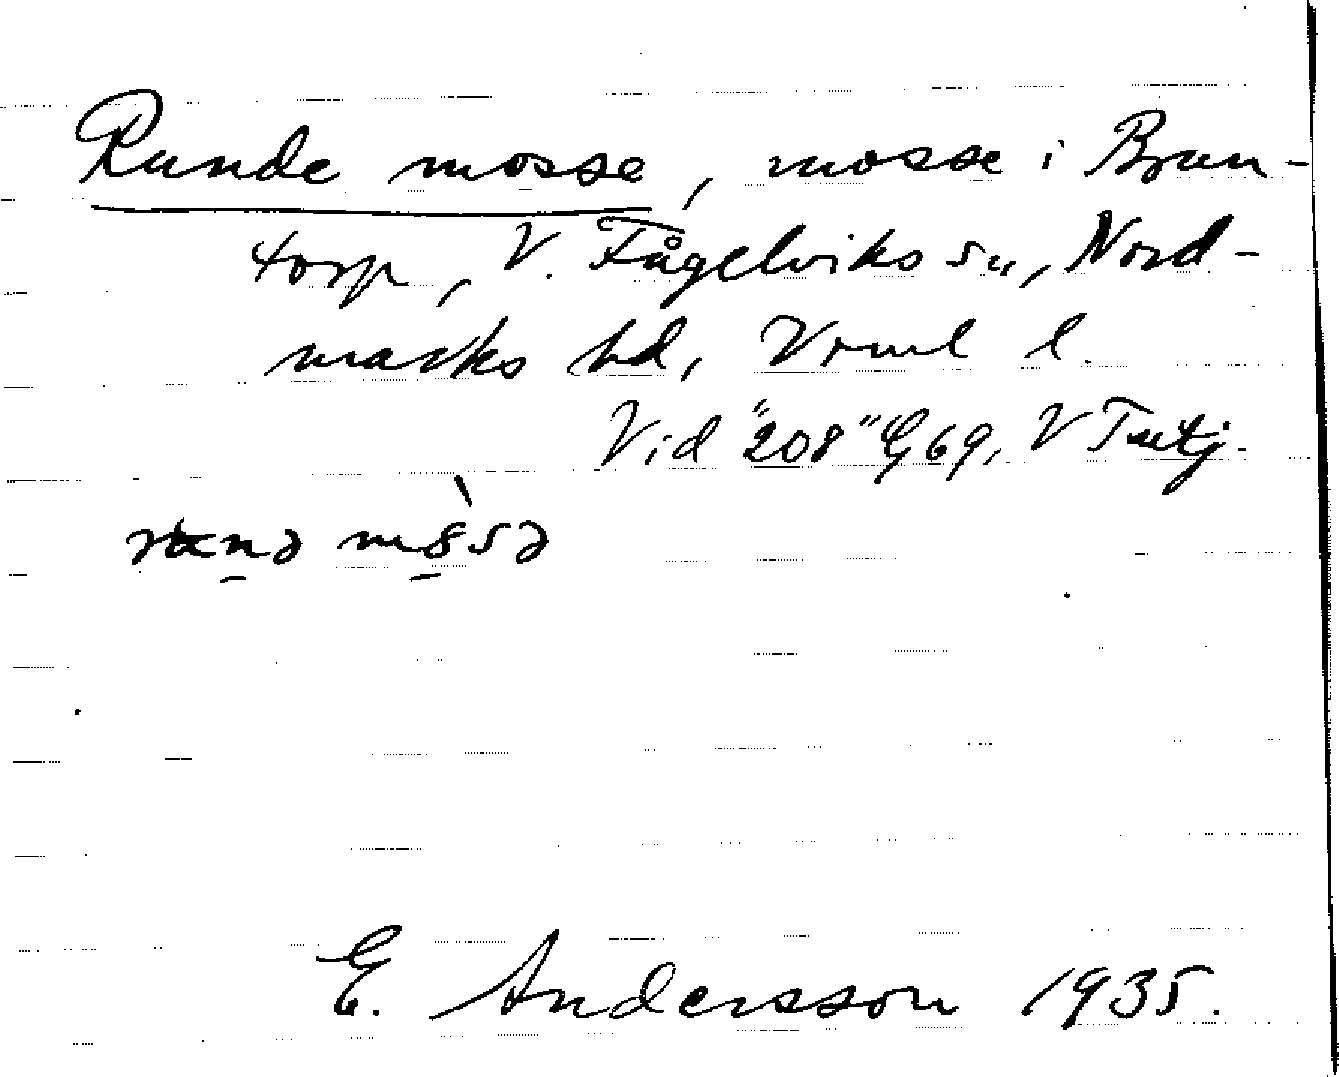 Runde mosse, mosse i Brun-
torp, V. Fågelviks sn, Nord-
marks hd, Vrml l.
Vid "208" G69, V
mosse
E. Andersson 1935.